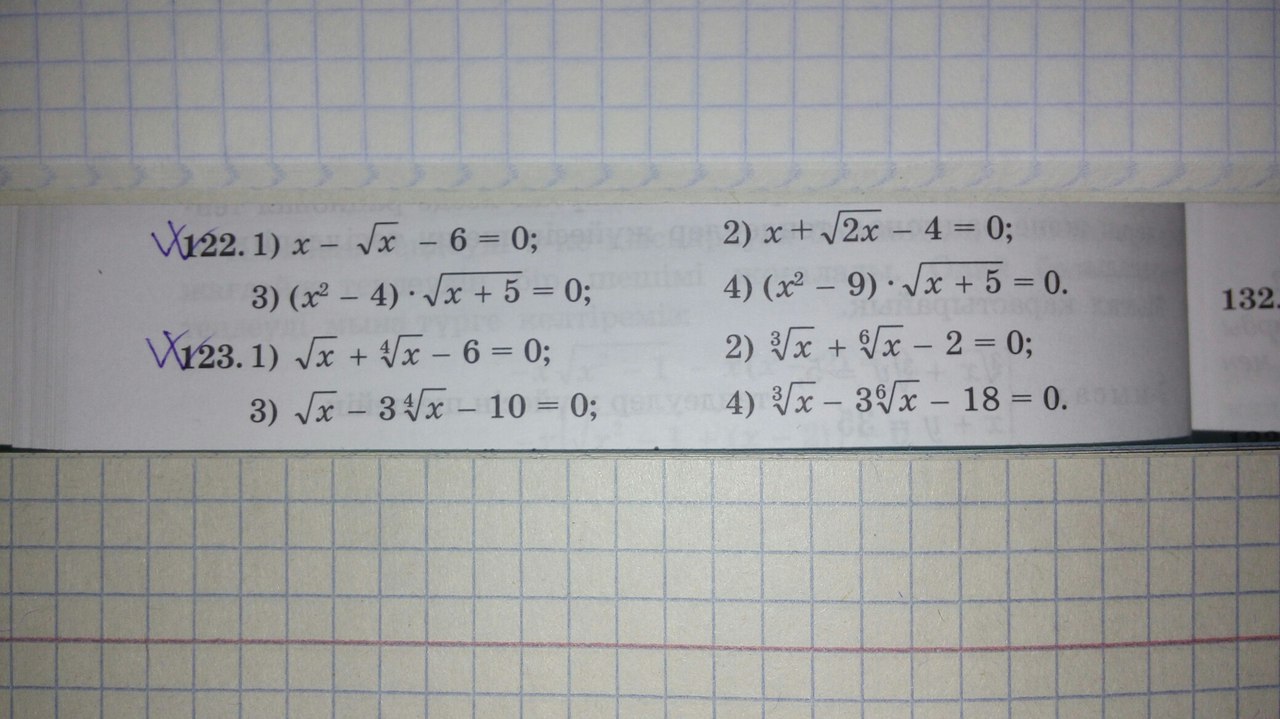 122. 1) x − √x − 6 = 0; 2) x + √2x − 4 = 0;
3) (x² − 4) · √x + 5 = 0; 4) (x² − 9) · √x + 5 = 0.
132.
123. 1) √x + ∜x − 6 = 0; 2) ∛x + ⁶√x − 2 = 0;
3) √x − 3∜x − 10 = 0; 4) ∛x − 3⁶√x − 18 = 0.